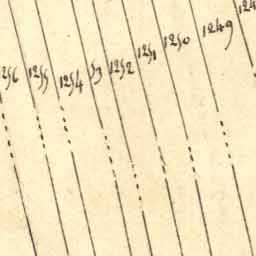 1256 1255 1254 53 1252 1251 1250 1249 124